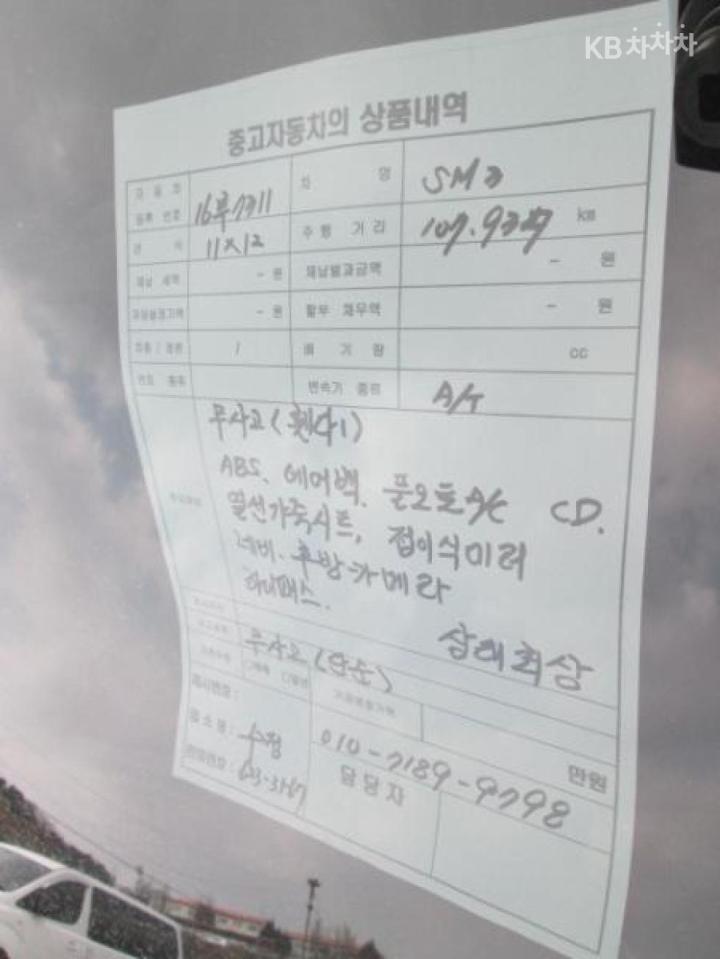 KB차차차
중고자동차의 상품내역
자동차 등록 번호 16루7311 차 명 SM3
연 식 11X12 주 행 거 리 107.937 km
체납 세액 - 원 체납범과금액 - 원
- 원 할부 채무액 - 원
/ 배 기 량 cc
변속기 종류 A/T
무사고 (휀다1)
ABS. 에어백. 풀오토A/C CD.
열선가죽시트, 접이식미러
네비. 후방카메라
하이패스.
상태최상
무사고 (단순)
제시번호 :
업 소 명 : 만원
전화번호 : 010-7189-9798
담당자